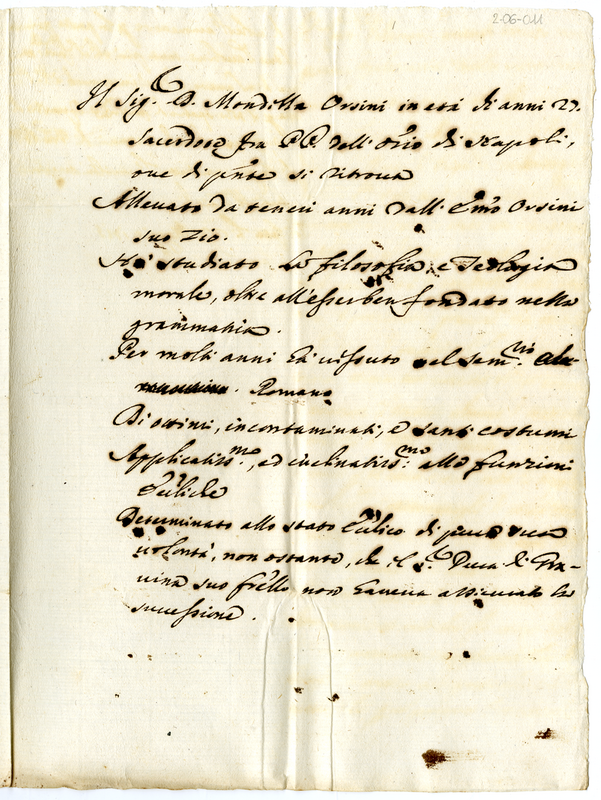 2-06-011
Il Sig.r D. Mondilla Orsini in età di anni 27.
Sacerdote fra PP. dell'Orio di Napoli,
ove di pnte si ritrova
Allevato da teneri anni dall'Emo Orsini
suo zio.
Ha' studiato la filosofia, e Teologia
morale, oltre all'esser ben fondato nella
grammatica.
Per molti anni hà vissuto nel Semrio.
Romano
Di ottimi, incontaminati, e santi costumi
Applicatissmo., ed inclinatissmo. alle funzioni
Ecclìche
Determinato allo stato Ecclico di pura sua
volontà, non ostante, che il S.r Duca di Gra-
vina suo frello non haveva assicurato la
successione.